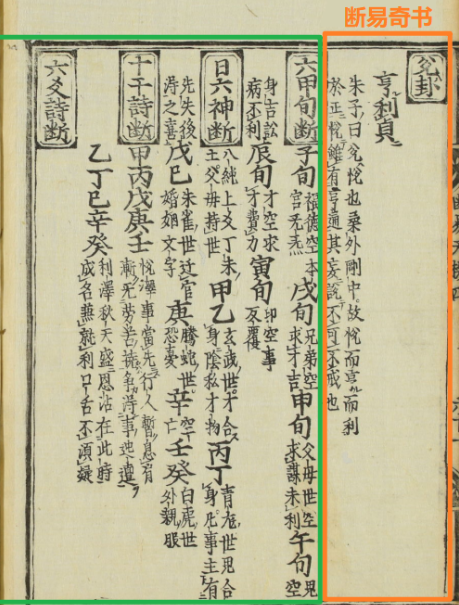 断易奇书
兌卦
亨利貞
朱子曰兌悅也柔外剛中故悅而亨而利
於正悅雖有亨通其妄說不可不戒也
六甲旬断 子旬 福德空本 宮无 戌旬 兄弟空 求才吉 甲旬 父母世空 求謀未利 午旬 鬼 空
身吉訟 病不利 辰旬 才空求 才費力 寅旬 空事
日六神断 八純上爻丁未 主父母持世 甲乙 玄武世才合 身陰私才物 丙丁 青龙世鬼合 身凡事主有
先失後 得之喜 戊巳 朱雀世迁官 婚姻文字 庚 騰蛇世 恐憂 辛 空亡 壬癸 白虎世 外親服
十干詩断 甲丙戊庚壬 悅澤事當先行人暫息肩 漸无劳苦 身得事
乙丁巳辛癸 利澤秋天盛恩沾在此時 成名 就利口舌不須疑
六爻詩断